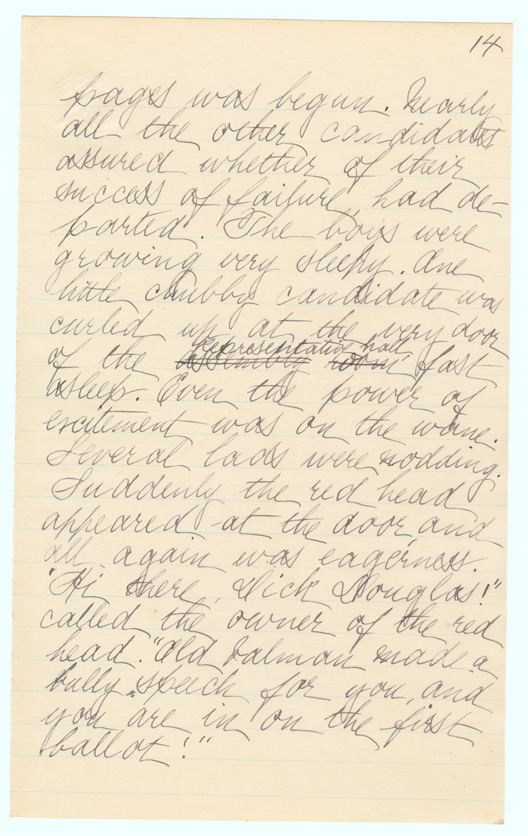 14
pages was begun. Nearly
all the other candidates
assured whether of their
success of failure, had de-
parted. The boys were
growing very sleepy. One
little chubby candidate was
curled up at the very door
representative hall
of the assembly room fast
asleep. Even the power of
excitement was on the wane.
Several lads were nodding.
Suddenly the red head
appeared at the door, and
all again was eagerness.
"Hi there, Dick Douglas!"
called the owner of the red
head. "Old Salmon made a
bully speech for you, and
you are in on the first
ballot!"